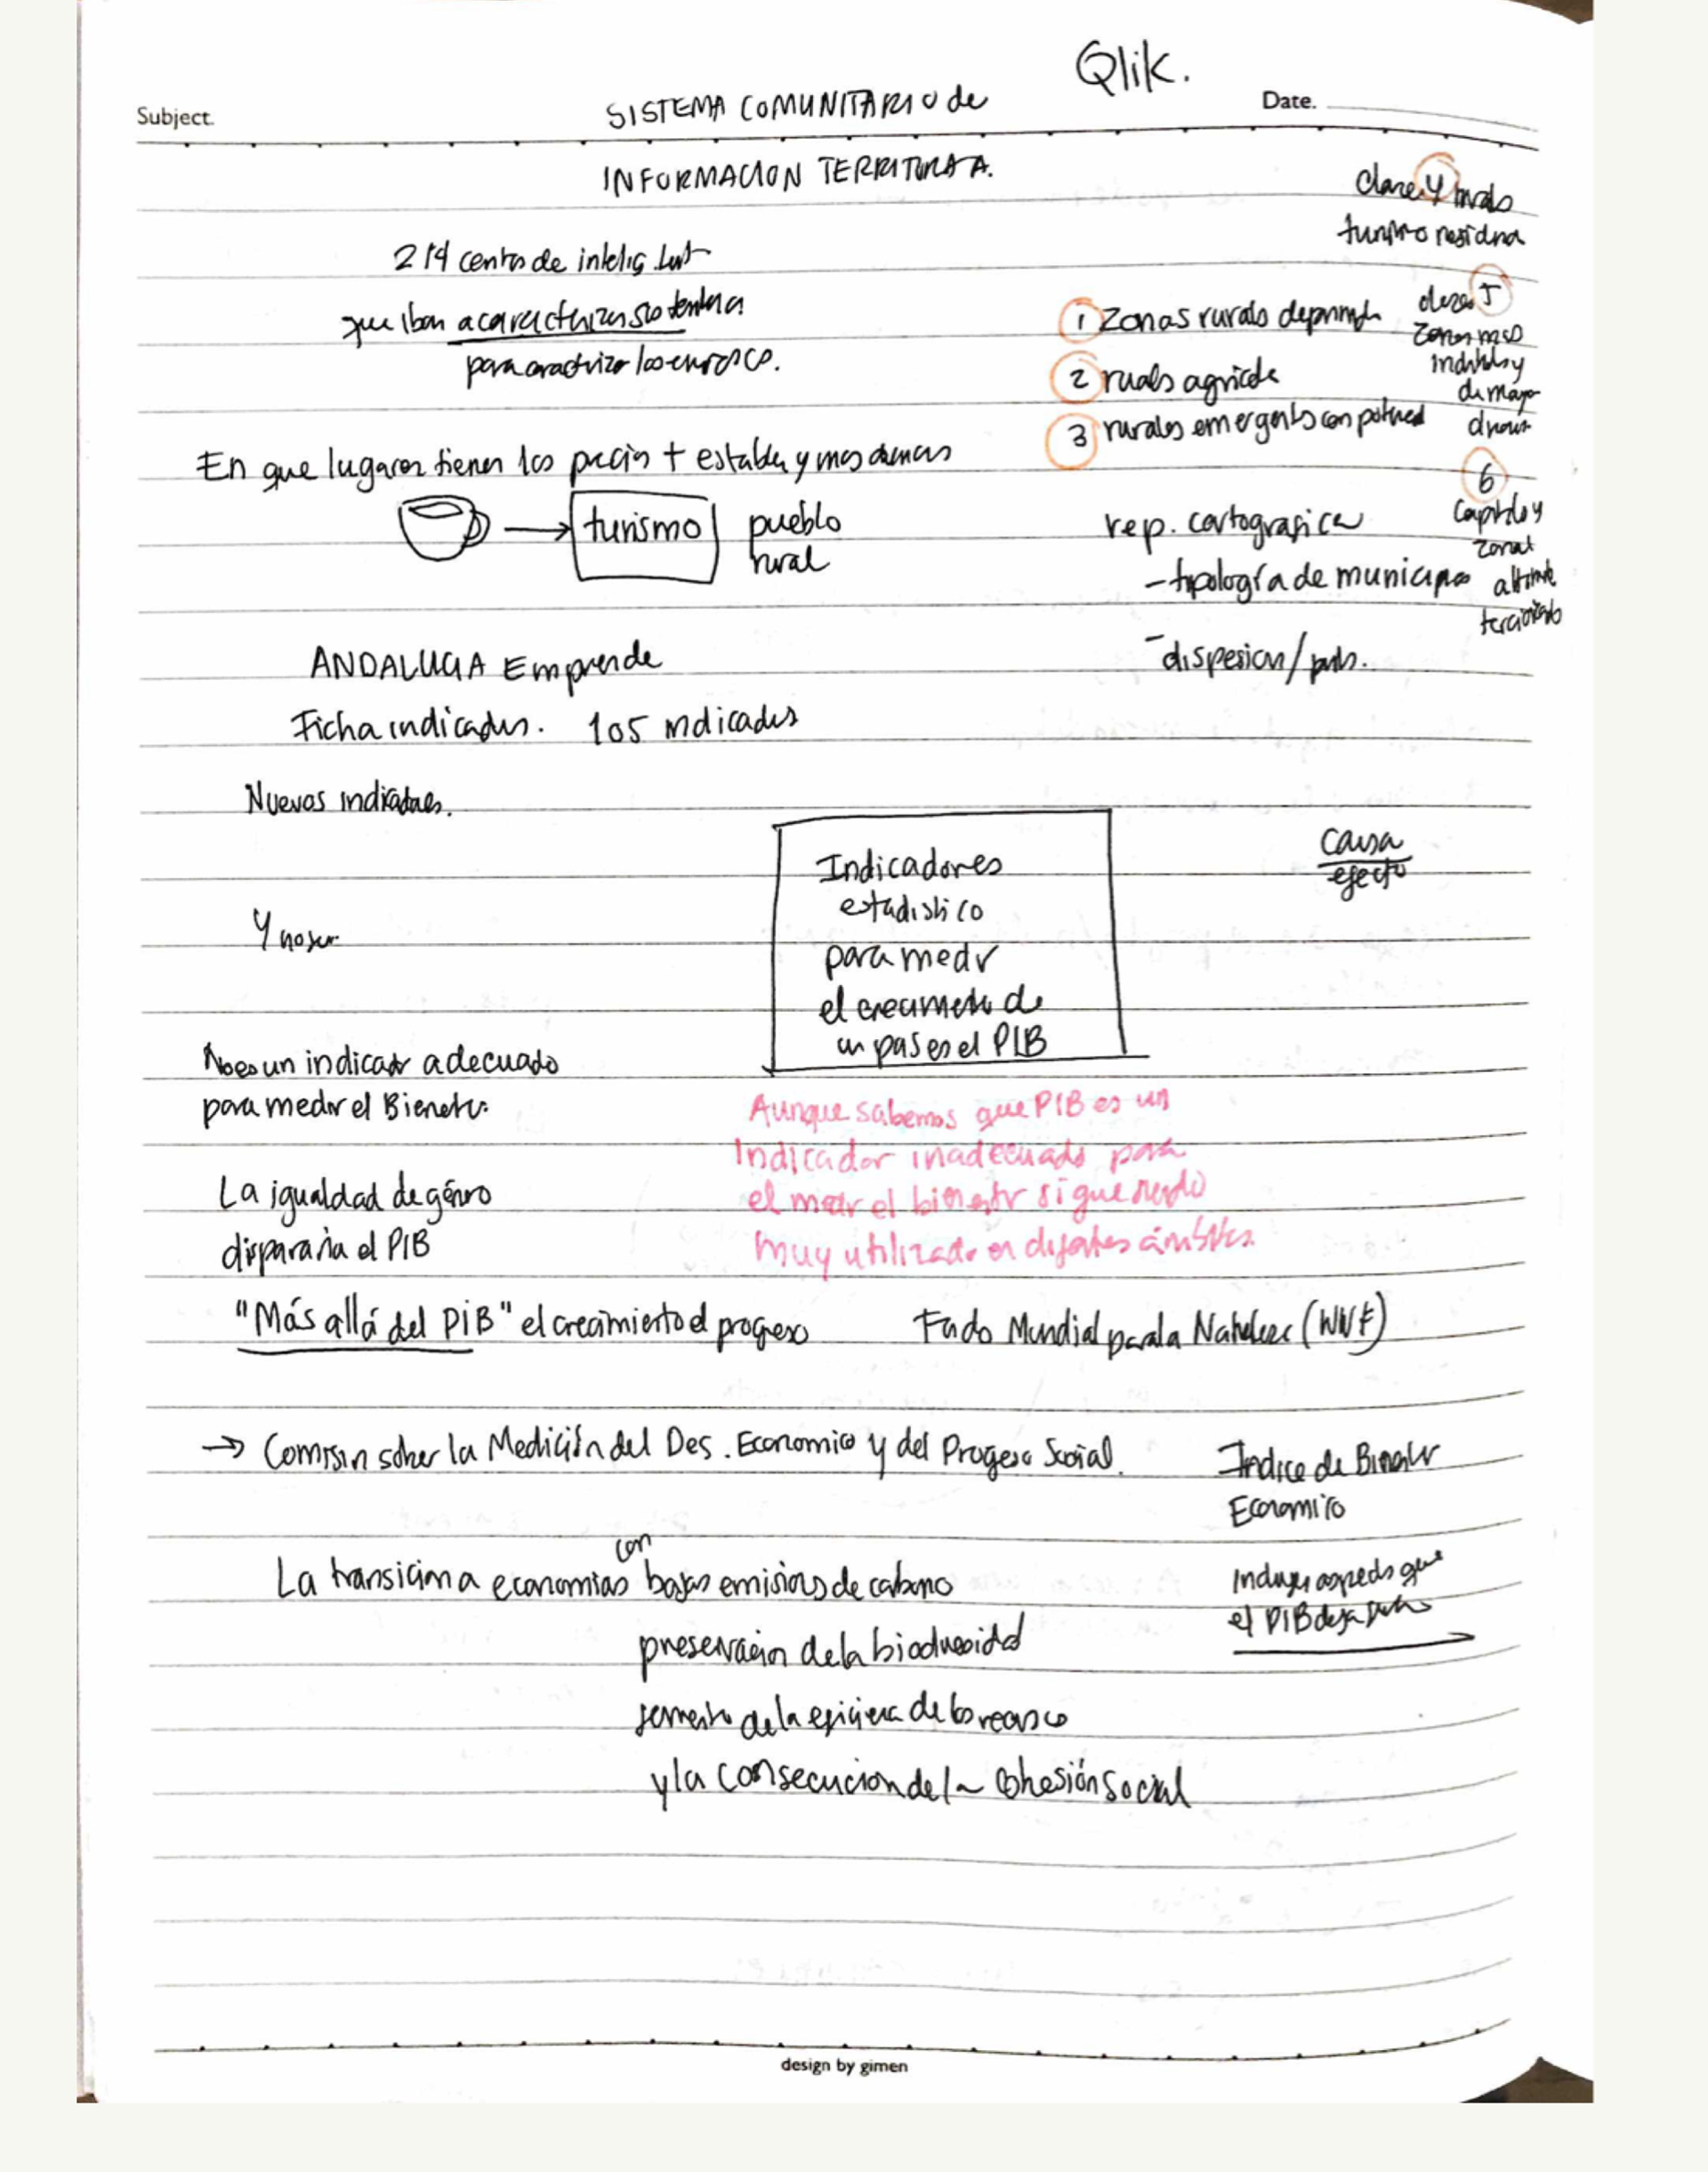 Qlik.
Subject.
SISTEMA COMUNITARIO de
Date.
INFORMACION TERRITORIAL A.
clase 4 rurales
turismo residna
214 centros de intelig.
que iban a caracterizar su territorio
para caractrizar los
1 Zonas rurales deprimda
2 ruals agricola
3 rurales emergents con potned
clase 5
Zonas mas
indstrls y
de mayor
dnam
6
Capitales y
zonas
altmnte
terciarizado
En que lugares tienen los precios + estables y mas
turismo
pueblo
rural
rep. cartografica
- tipología de municipios
- dispersion /
ANDALUCIA Emprende
Ficha indicadrs. 105 indicadrs
Nuevos indicadores.
Indicadores
estadistico
para medir
el crecimeto de
un pas es el PIB
causa
efecto
Y no ser
No es un indicadr adecuado
para medir el Bienestr.
Aunque sabemos que PIB es un
Indicador inadecuado para
el medir el bienestr sigue siendo
muy utilizado en difertes ámbitos.
La igualdad de género
dispararía el PIB
"Más allá del PIB" el crecimiento el progreso
Fndo Mundial para la Natrleza (WWF)
→ Comisin sobre la Medición del Des. Economico y del Progreso Social.
Indice de Binestr
Economico
con
La transicion a economias bajas emisions de carbono
Incluye aspectos que
el PIB deja fuera
preservación de la biodiversidad
fomento de la eficiencia de los recurso
y la consecucion de la cohesión social
design by gimen